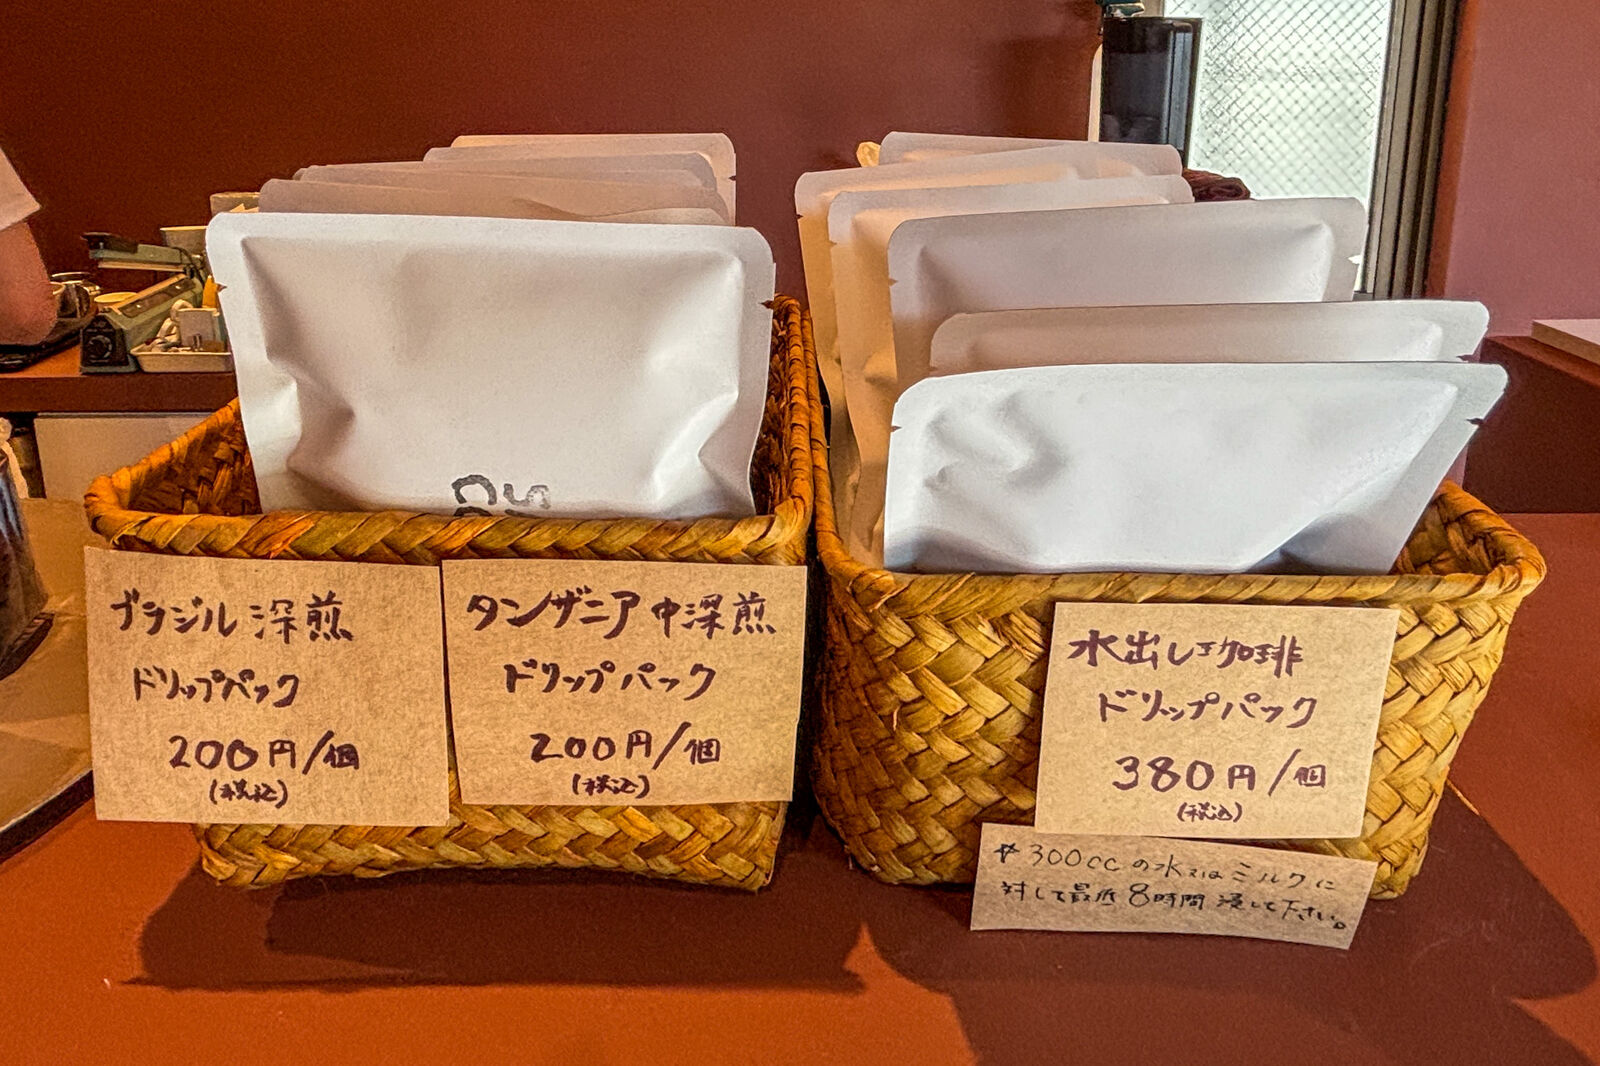 ブラジル 深煎
ドリップパック
200円/個
(税込)
タンザニア 中深煎
ドリップパック
200円/個
(税込)
水出し珈琲
ドリップパック
380円/個
(税込)
300ccの水又はミルクに
対して最低8時間浸して下さい。